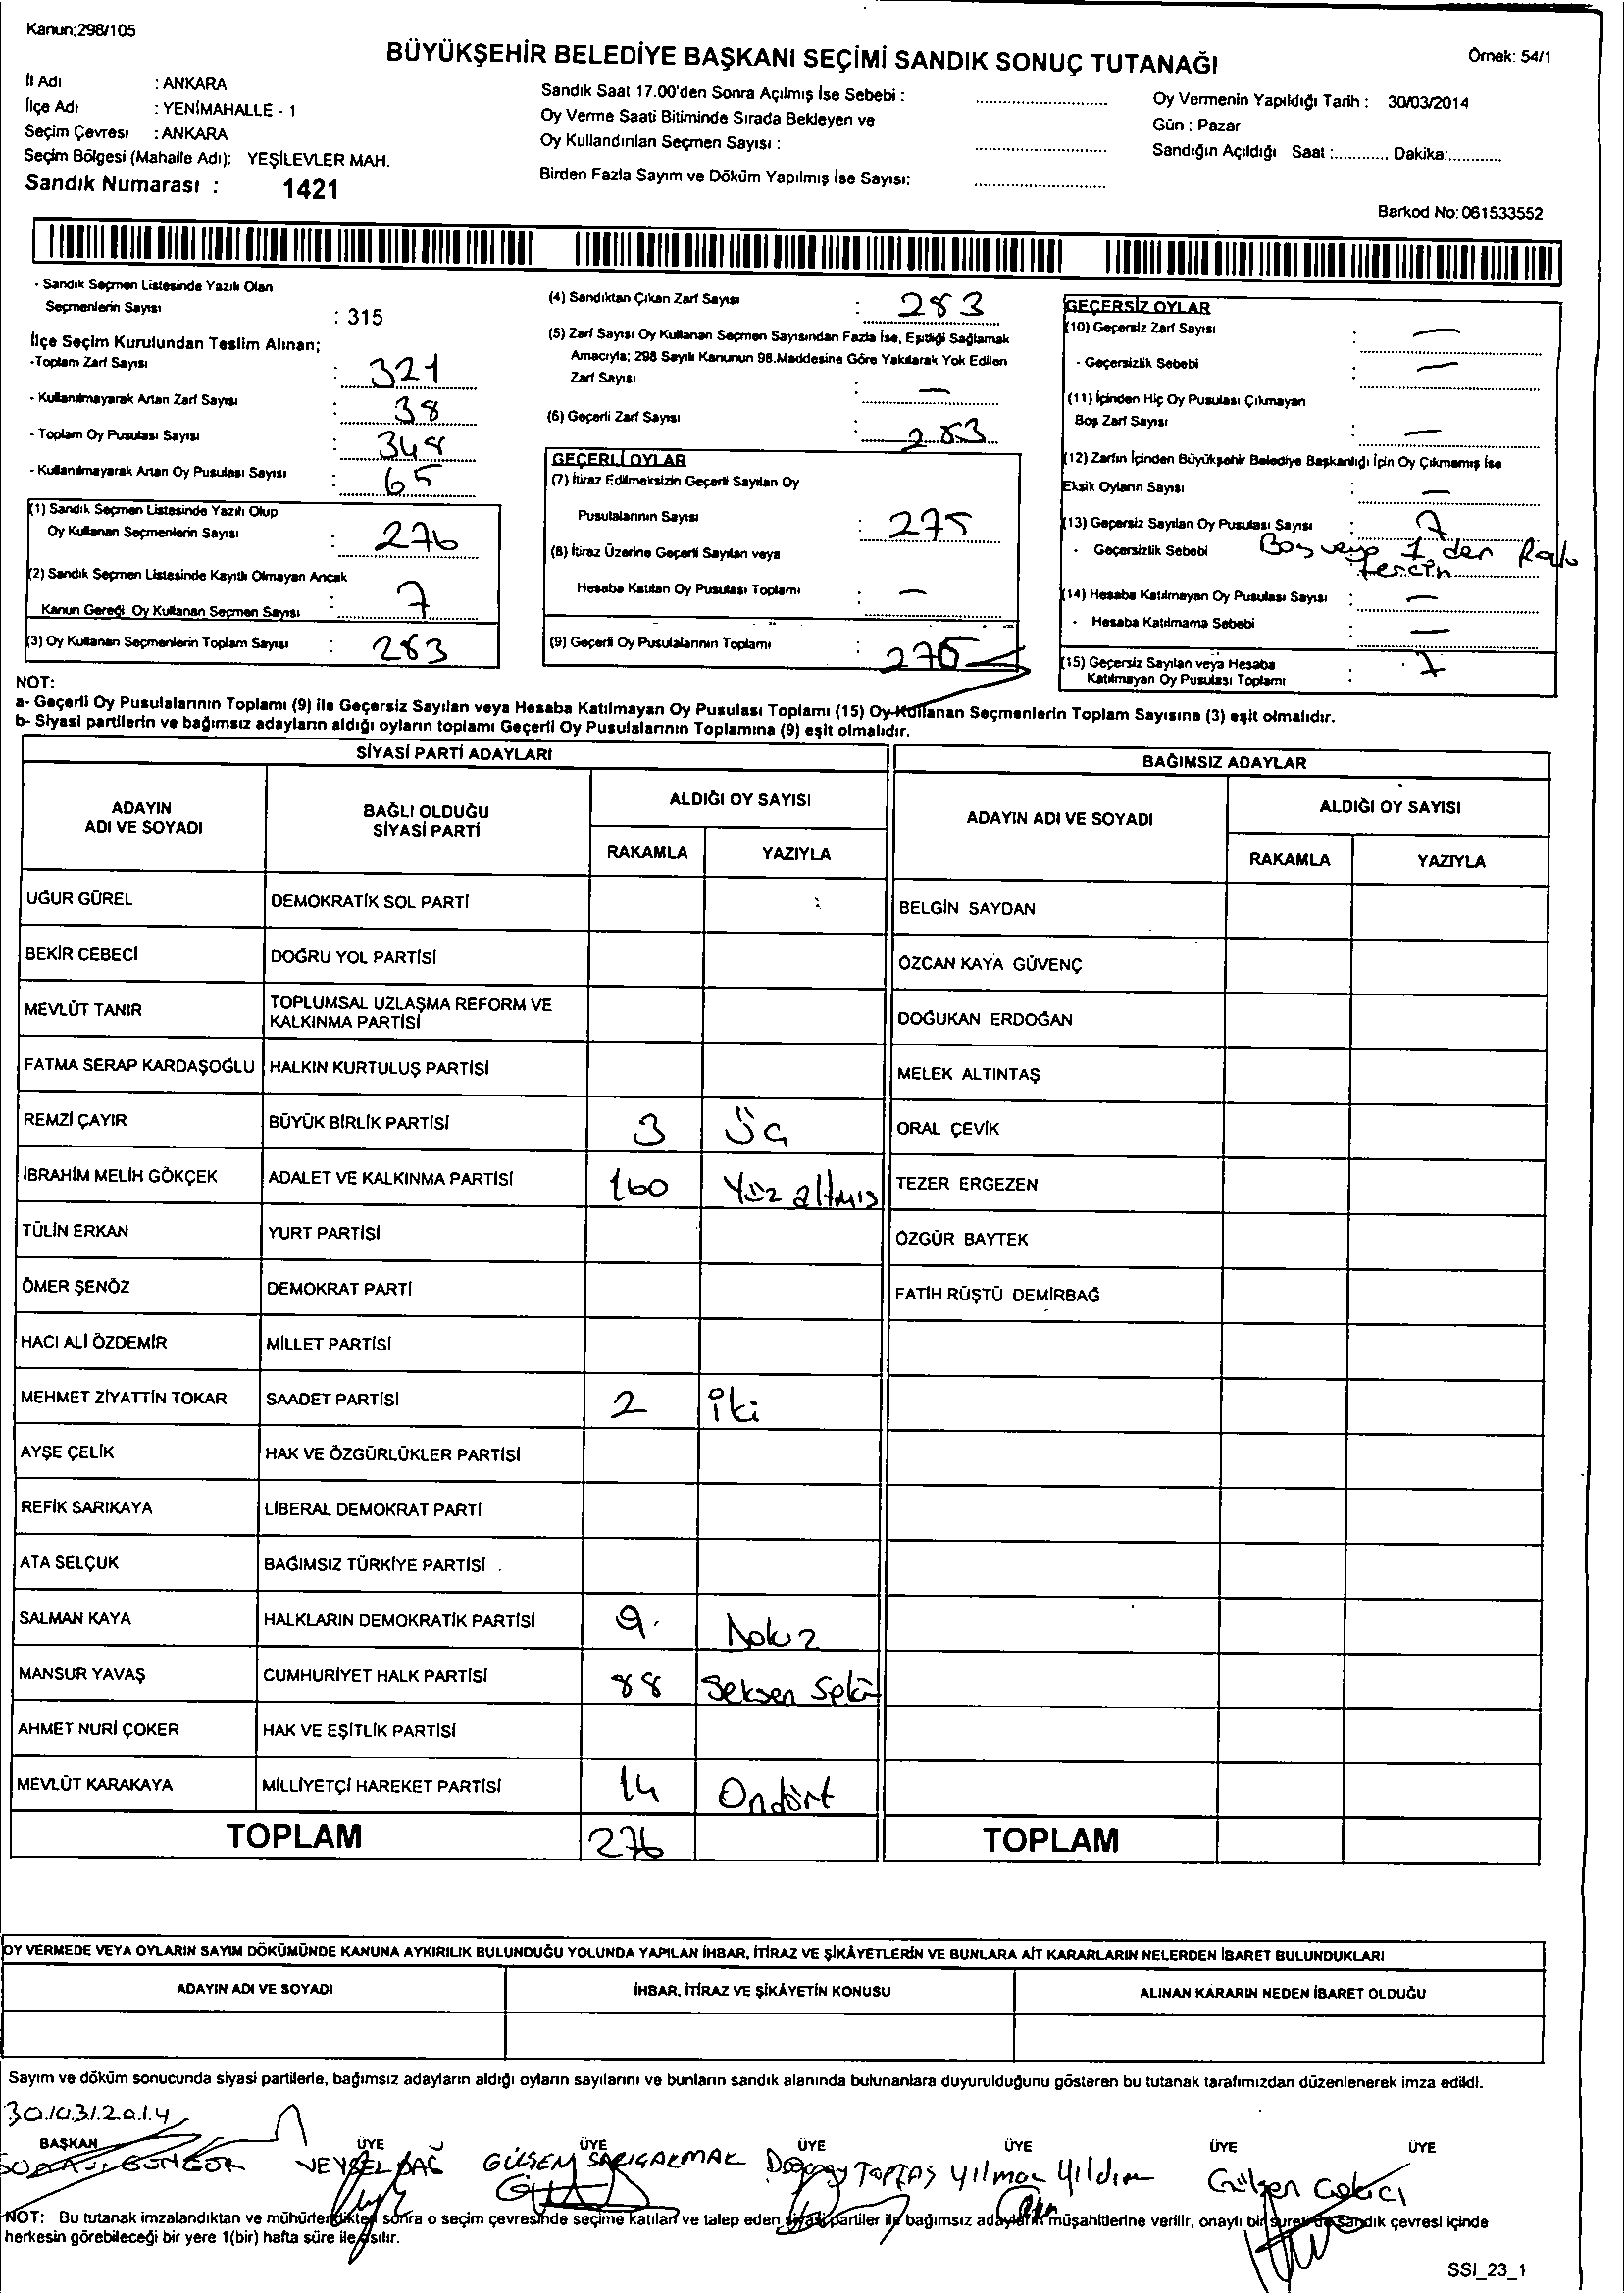 Kanun:298/105
BÜYÜKŞEHİR BELEDİYE BAŞKANI SEÇİMİ SANDIK SONUÇ TUTANAĞI
Örnek: 54/1
İl Adı : ANKARA
İlçe Adı : YENİMAHALLE - 1
Seçim Çevresi : ANKARA
Seçim Bölgesi (Mahalle Adı): YEŞİLEVLER MAH.
Sandık Numarası : 1421
Sandık Saat 17.00'den Sonra Açılmış İse Sebebi :
Oy Verme Saati Bitiminde Sırada Bekleyen ve
Oy Kullandırılan Seçmen Sayısı :
Birden Fazla Sayım ve Döküm Yapılmış İse Sayısı:
Oy Vermenin Yapıldığı Tarih : 30/03/2014
Gün : Pazar
Sandığın Açıldığı Saat :............ Dakika:............
Barkod No: 061533552
- Sandık Seçmen Listesinde Yazılı Olan
Seçmenlerin Sayısı : 315
İlçe Seçim Kurulundan Teslim Alınan;
-Toplam Zarf Sayısı : 321
- Kullanılmayarak Artan Zarf Sayısı : 38
- Toplam Oy Pusulası Sayısı : 348
- Kullanılmayarak Artan Oy Pusulası Sayısı : 65
(1) Sandık Seçmen Listesinde Yazılı Olup
Oy Kullanan Seçmenlerin Sayısı : 276
(2) Sandık Seçmen Listesinde Kayıtlı Olmayan Ancak
Kanun Gereği Oy Kullanan Seçmen Sayısı : 7
(3) Oy Kullanan Seçmenlerin Toplam Sayısı : 283
(4) Sandıktan Çıkan Zarf Sayısı : 283
(5) Zarf Sayısı Oy Kullanan Seçmen Sayısından Fazla İse, Eşitliği Sağlamak
Amacıyla; 298 Sayılı Kanunun 98.Maddesine Göre Yakılarak Yok Edilen
Zarf Sayısı : —
(6) Geçerli Zarf Sayısı : 283
GEÇERLİ OYLAR
(7) İtiraz Edilmeksizin Geçerli Sayılan Oy
Pusulalarının Sayısı : 275
(8) İtiraz Üzerine Geçerli Sayılan veya
Hesaba Katılan Oy Pusulası Toplamı : —
(9) Geçerli Oy Pusulalarının Toplamı : 276
GEÇERSİZ OYLAR
(10) Geçersiz Zarf Sayısı : —
- Geçersizlik Sebebi : —
(11) İçinden Hiç Oy Pusulası Çıkmayan
Boş Zarf Sayısı : —
(12) Zarfın İçinden Büyükşehir Belediye Başkanlığı İçin Oy Çıkmamış İse
Eksik Oyların Sayısı : —
(13) Geçersiz Sayılan Oy Pusulası Sayısı : 7
- Geçersizlik Sebebi Boş veya 1 den
(14) Hesaba Katılmayan Oy Pusulası Sayısı : —
- Hesaba Katılmama Sebebi : —
(15) Geçersiz Sayılan veya Hesaba
Katılmayan Oy Pusulası Toplamı : 7
NOT:
a- Geçerli Oy Pusulalarının Toplamı (9) ile Geçersiz Sayılan veya Hesaba Katılmayan Oy Pusulası Toplamı (15) Oy Kullanan Seçmenlerin Toplam Sayısına (3) eşit olmalıdır.
b- Siyasi partilerin ve bağımsız adayların aldığı oyların toplamı Geçerli Oy Pusulalarının Toplamına (9) eşit olmalıdır.
SİYASİ PARTİ ADAYLARI
BAĞIMSIZ ADAYLAR
ADAYIN ADI VE SOYADI
BAĞLI OLDUĞU SİYASİ PARTİ
ALDIĞI OY SAYISI
RAKAMLA YAZIYLA
ADAYIN ADI VE SOYADI
ALDIĞI OY SAYISI
RAKAMLA YAZIYLA
UĞUR GÜREL DEMOKRATİK SOL PARTİ BELGİN SAYDAN
BEKİR CEBECİ DOĞRU YOL PARTİSİ ÖZCAN KAYA GÜVENÇ
MEVLÜT TANIR TOPLUMSAL UZLAŞMA REFORM VE KALKINMA PARTİSİ DOĞUKAN ERDOĞAN
FATMA SERAP KARDAŞOĞLU HALKIN KURTULUŞ PARTİSİ MELEK ALTINTAŞ
REMZİ ÇAYIR BÜYÜK BİRLİK PARTİSİ 3 Üç ORAL ÇEVİK
İBRAHİM MELİH GÖKÇEK ADALET VE KALKINMA PARTİSİ 160 Yüz altmış TEZER ERGEZEN
TÜLİN ERKAN YURT PARTİSİ ÖZGÜR BAYTEK
ÖMER ŞENÖZ DEMOKRAT PARTİ FATİH RÜŞTÜ DEMİRBAĞ
HACI ALİ ÖZDEMİR MİLLET PARTİSİ
MEHMET ZİYATTİN TOKAR SAADET PARTİSİ 2 iki
AYŞE ÇELİK HAK VE ÖZGÜRLÜKLER PARTİSİ
REFİK SARIKAYA LİBERAL DEMOKRAT PARTİ
ATA SELÇUK BAĞIMSIZ TÜRKİYE PARTİSİ
SALMAN KAYA HALKLARIN DEMOKRATİK PARTİSİ 9 Dokuz
MANSUR YAVAŞ CUMHURİYET HALK PARTİSİ 88 Seksen
AHMET NURİ ÇOKER HAK VE EŞİTLİK PARTİSİ
MEVLÜT KARAKAYA MİLLİYETÇİ HAREKET PARTİSİ 14 Ondört
TOPLAM 276 TOPLAM
OY VERMEDE VEYA OYLARIN SAYIM DÖKÜMÜNDE KANUNA AYKIRILIK BULUNDUĞU YOLUNDA YAPILAN İHBAR, İTİRAZ VE ŞİKÂYETLERİN VE BUNLARA AİT KARARLARIN NELERDEN İBARET BULUNDUKLARI
ADAYIN ADI VE SOYADI İHBAR, İTİRAZ VE ŞİKÂYETİN KONUSU ALINAN KARARIN NEDEN İBARET OLDUĞU
Sayım ve döküm sonucunda siyasi partilerle, bağımsız adayların aldığı oyların sayılarını ve bunların sandık alanında bulunanlara duyurulduğunu gösteren bu tutanak tarafımızdan düzenlenerek imza edildi.
30/03/2014
BAŞKAN ÜYE ÜYE ÜYE ÜYE ÜYE ÜYE
GÜNGÖR VEYSEL DAĞ GÜLSEM TOPTAŞ Yılmaz Yıldırım Gülşen
NOT: Bu tutanak imzalandıktan ve mühürlendikten sonra o seçim çevresinde seçime katılan ve talep eden siyasi partiler ile bağımsız adayların müşahitlerine verilir, onaylı bir sureti de sandık çevresi içinde
herkesin görebileceği bir yere 1(bir) hafta süre ile asılır.
SSI_23_1